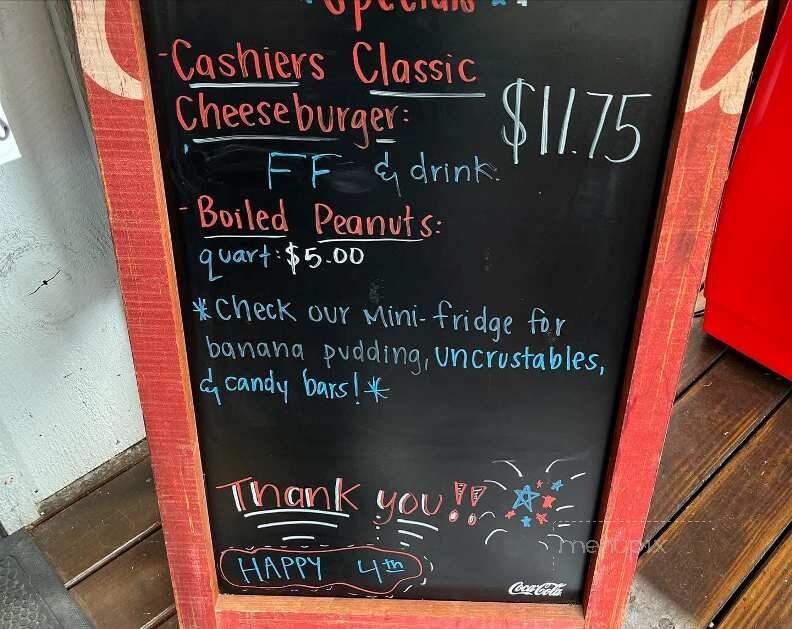 Specials
-Cashiers Classic
Cheeseburger: $11.75
FF & drink.
-Boiled Peanuts:
quart: $5.00
*Check our Mini-fridge for
banana pudding, uncrustables,
& candy bars!*
Thank you!!
HAPPY 4th
Coca-Cola
menupix